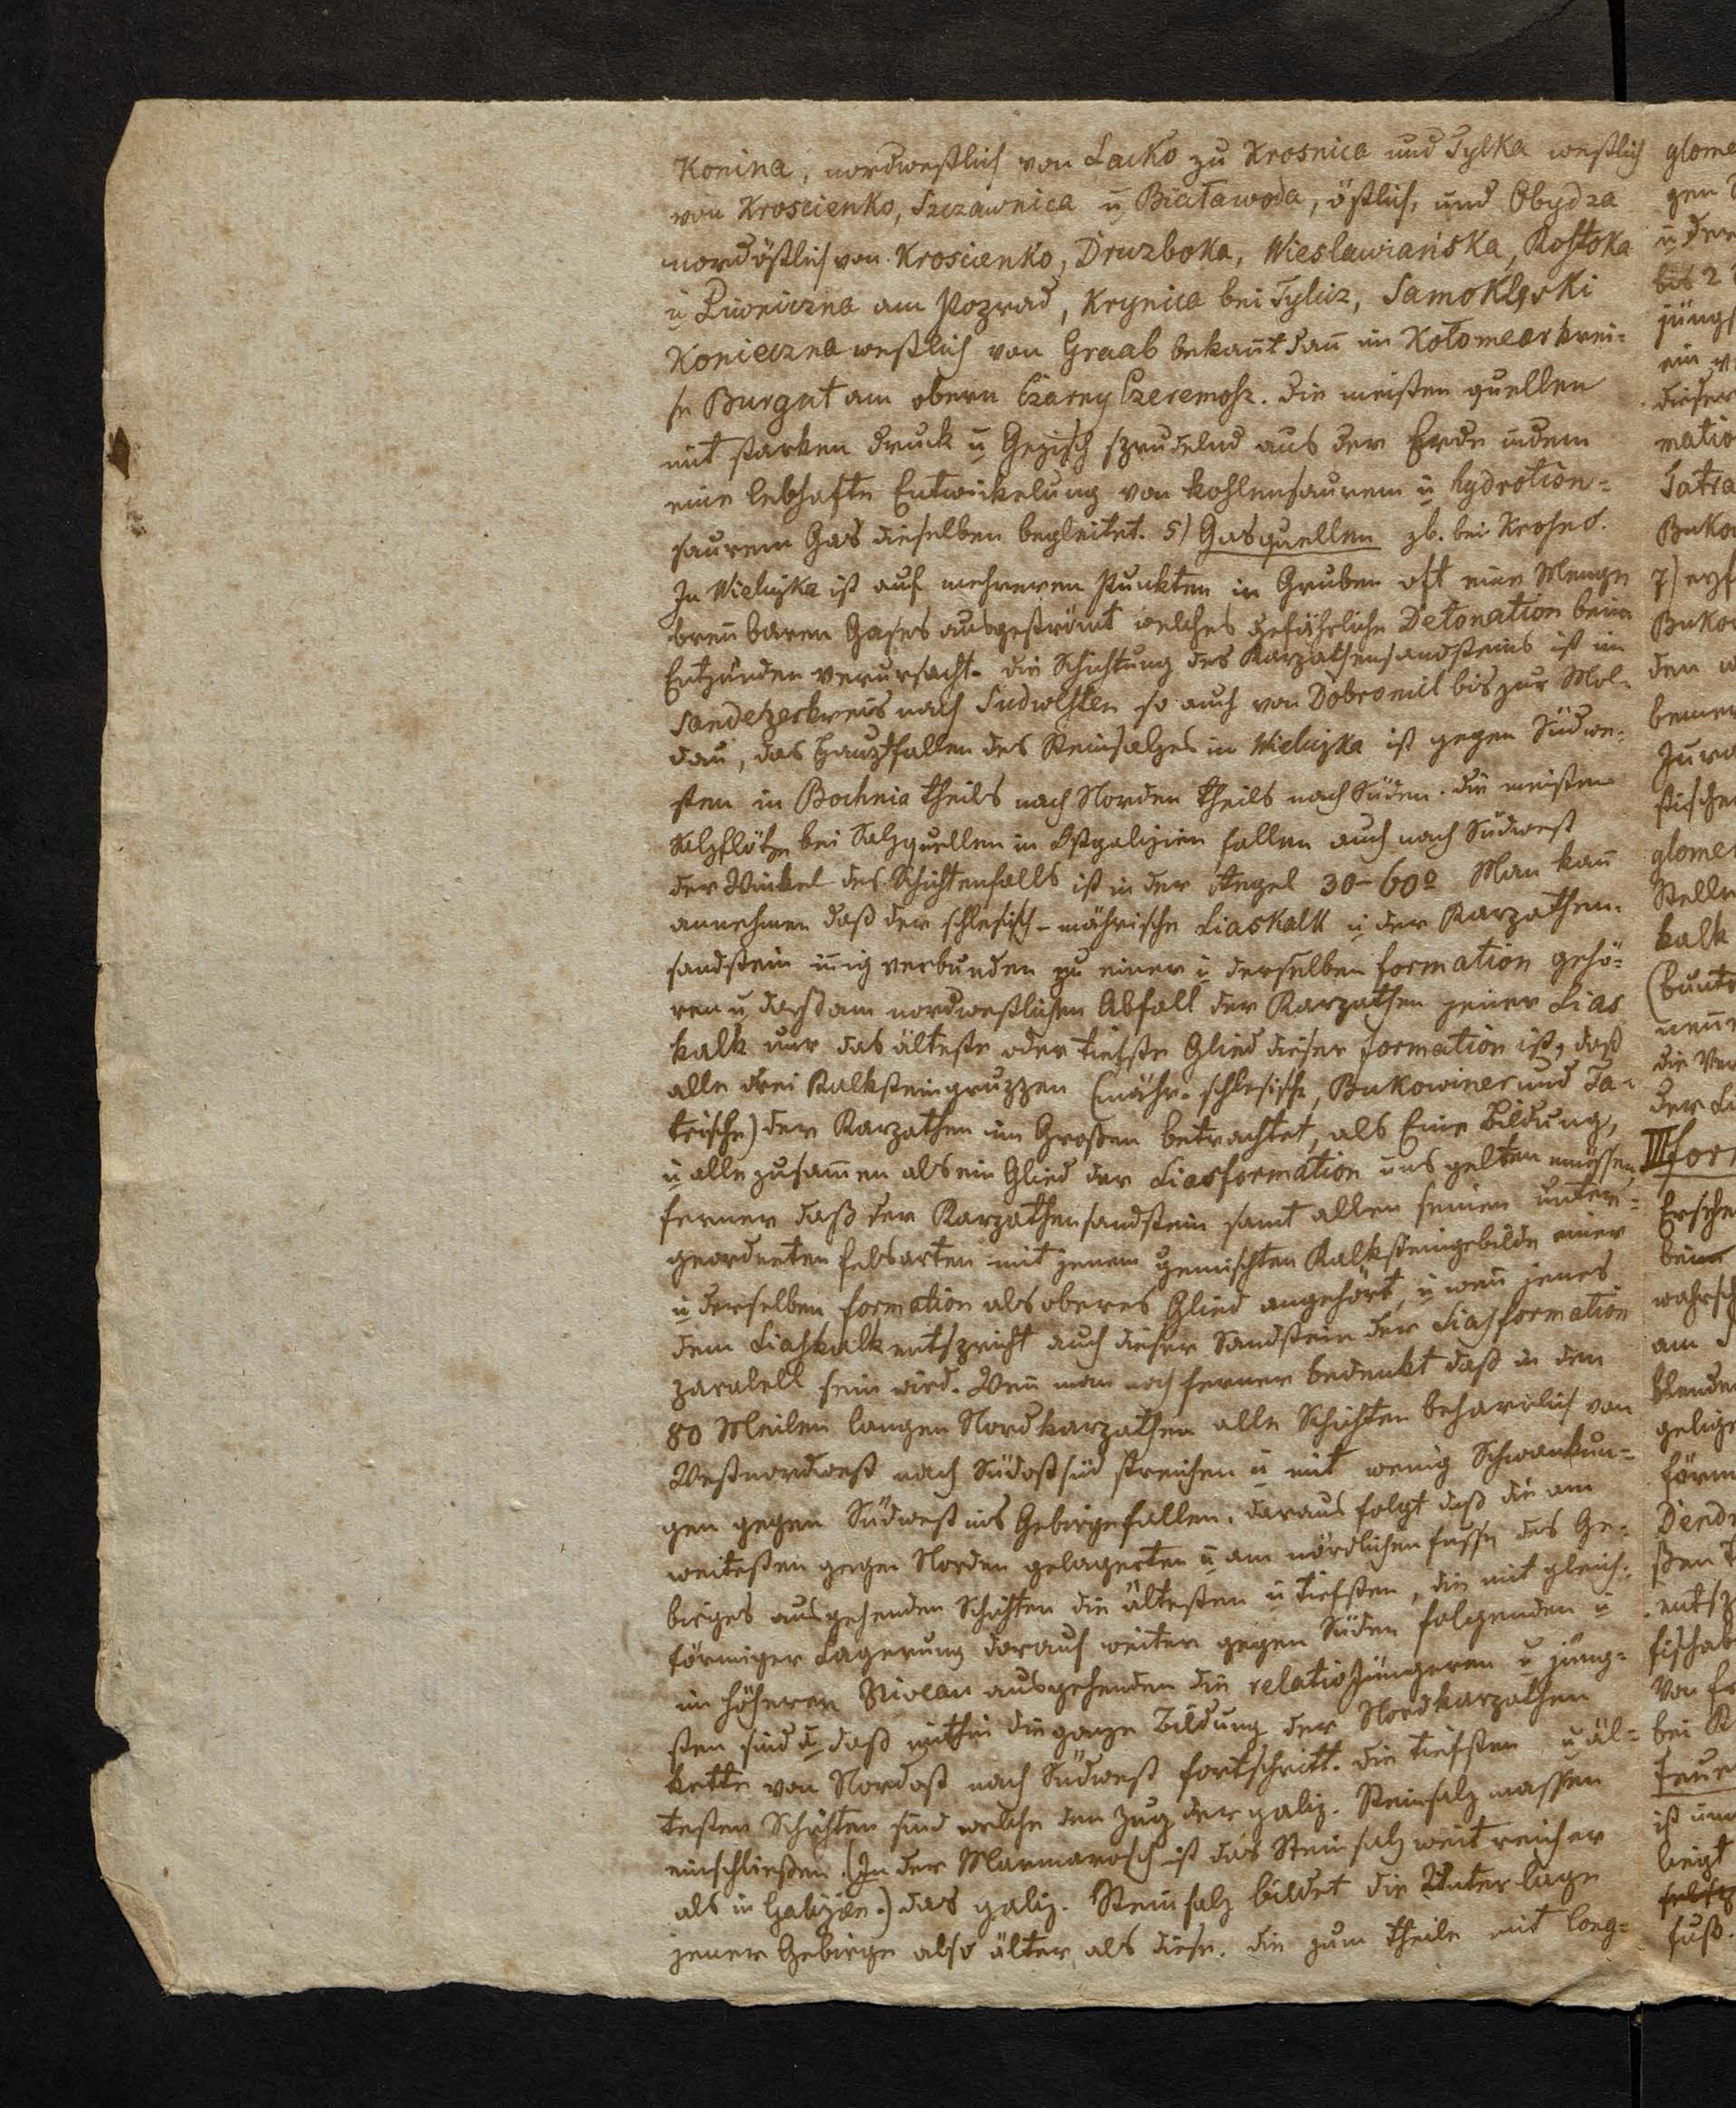 Konina, nordwestlich von Lacko zu Krosnica und Tylka westlich
von Kroscienko, Szczawnica u Białawoda, östlich, und Obydza
nordöstlich von Kroscienko, Druzboka, Wieslawiańska, Rostoka
u Piwniczna am Poprad, Krynica bei Tylicz, Samoklęski
Konieczna westlich von Graab bekan̄t dan̄ im Kołomeerkrei-
se Burgut am obern Czarny Czeremosz. die meisten quellen
mit starken druck u Gezisch sprudelnd aus der Erde indem
eine lebhafte Entwickelung von kohlensaurem u hydrotion-
saurem Gas dieselben begleitet. 5) Gasquellen zb. bei Krosno.
In Wieliczka ist auf mehreren Punkten in Gruben oft eine Menge
bren̄baren Gases ausgeströmt welches gefährliche Detonation beim
Entzünden verursacht. die Schichtung des Karpathensandsteins ist im
Sandetzerkreis nach Südwesten so auch von Dobromil bis zur Mol-
dau, das Hauptfallen des Steinsalzes in Wieliczka ist gegen Südwe-
sten in Bochnia theils nach Norden theils nach Süden. die meisten
Salzflötze bei Salzquellen in Ostgalizien fallen auch nach Südwest
der Winkel des Schichtenfalls ist in der Regel 30-60° Man kan̄
annehmen daß der schlesisch-mährische Liaskalk u der Karpathen-
sandstein in̄ig verbunden zu einer u derselben formation gehö-
ren u daß am nordwestlichen Abfall der Karpathen jener Lias
kalk nur das älteste oder tiefste Glied dieser formation ist, daß
alle drei Kalksteingruppen (mähr-schlesische, Bukowiner und Ta-
trische) der Karpathen im Großen betrachtet, als Eine Bildung,
u alle zusam̄en als ein Glied der Liasformation uns gelten müssen
ferner daß der Karpathensandstein samt allen seinen unter-
geordneten felsarten mit jenem gemischten Kalksteingebilde einer
u derselben formation als oberes Glied angehört, u wen̄ jenes
dem Liaskalk entspricht auch dieser Sandstein der Liasformation
paralell sein wird. Wen̄ man noch ferner bedenkt daß in den
80 Meilen langen Nordkarpathen alle Schichten beharrlich von
Westnordwest nach Südostsüd streichen u mit wenig Schwankun-
gen gegen Südwest ins Gebirge fallen. daraus folgt daß die am
weitesten gegen Norden gelagerten u am nördlichen fusse des Ge-
birges ausgehenden Schichten die ältesten u tiefsten, die mit gleich-
förmiger Lagerung darauf weiter gegen Süden folgenden u
im höheren Niveau ausgehenden die relativ jüngeren u jüng-
sten sind u daß mithin die ganze Bildung der Nordkarpathen
kette von Nordost nach Südwest fortschritt. die tiefsten u äl-
testen Schichten sind welche den Zug der galiz. Steinsalz massen
einschließen. (In der Marmarosch ist das Steinsalz weit reicher
als in Galizien.) das galiz. Steinsalz bildet die Unterlage
jener Gebirge also älter als diese. die zum theile mit Cong-
glome
gen
u der
bis 2
jüngs
ein
dieser
matio
Tatra
Buko
7)
Buko
den
bemer
Jura
stische
glomer
Stelle
kalk
(bunte
die Ver
der
III for
Ersche
beim
wahrsch
am
blende
förm
Dend
sten
entsp
von
bei
feuer
ist
liegt
fuß.